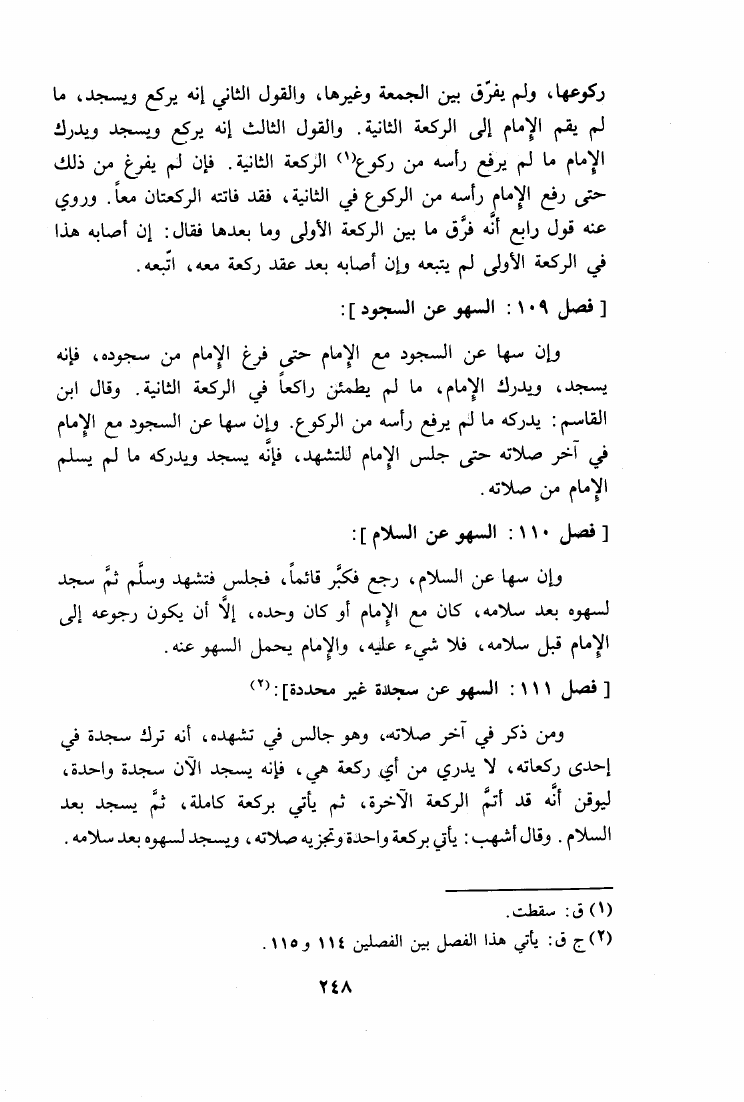 ركوعها، ولم يفرّق بين الجمعة وغيرها، والقول الثاني إنه يركع ويسجد، ما
لم يقم الإمام إلى الركعة الثانية. والقول الثالث إنه يركع ويسجد ويدرك
الإمام ما لم يرفع رأسه من ركوع(١) الركعة الثانية. فإن لم يفرغ من ذلك
حتى رفع الإمام رأسه من الركوع في الثانية، فقد فاتته الركعتان معاً. وروي
عنه قول رابع أنَّه فرَّق ما بين الركعة الأولى وما بعدها فقال: إن أصابه هذا
في الركعة الأولى لم يتبعه وإن أصابه بعد عقد ركعة معه، اتّبعه.
[ فصل ١٠٩ : السهو عن السجود ]:
وإن سها عن السجود مع الإمام حتى فرغ الإمام من سجوده، فإنه
يسجد، ويدرك الإمام، ما لم يطمئن راكعاً في الركعة الثانية. وقال ابن
القاسم: يدركه ما لم يرفع رأسه من الركوع. وإن سها عن السجود مع الإمام
في آخر صلاته حتى جلس الإمام للتشهد، فإنَّه يسجد ويدركه ما لم يسلم
الإمام من صلاته.
[ فصل ١١٠ : السهو عن السلام ]:
وإن سها عن السلام، رجع فكبَّر قائماً، فجلس فتشهد وسلَّم ثمَّ سجد
لسهوه بعد سلامه، كان مع الإمام أو كان وحده، إلاَّ أن يكون رجوعه إلى
الإمام قبل سلامه، فلا شيء عليه، والإمام يحمل السهو عنه.
[ فصل ١١١ : السهو عن سجدة غير محددة]:(٢)
ومن ذكر في آخر صلاته، وهو جالس في تشهده، أنه ترك سجدة في
إحدى ركعاته، لا يدري من أي ركعة هي، فإنه يسجد الآن سجدة واحدة،
ليوقن أنَّه قد أتمَّ الركعة الآخرة، ثم يأتي بركعة كاملة، ثمَّ يسجد بعد
السلام. وقال أشهب: يأتي بركعة واحدة وتجزيه صلاته، ويسجد لسهوه بعد سلامه.
(١) ق: سقطت.
(٢) ج ق: يأتي هذا الفصل بين الفصلين ١١٤ و ١١٥.
٢٤٨